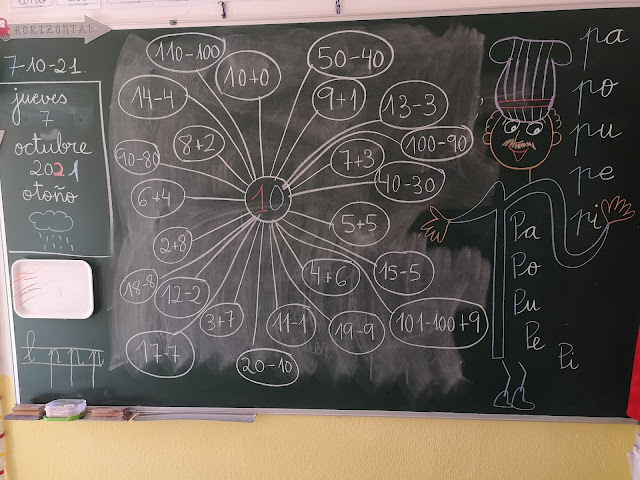 HORIZONTAL
7-10-21.
jueves
7
octubre
2021
otoño
l p p p
110-100
10+0
50-40
14-4
9+1
13-3
8+2
100-90
10-80
7+3
40-30
6+4
10
5+5
2+8
18-8
12-2
4+6
15-5
3+7
11-1
19-9
101-100+9
17-7
20-10
pa
po
pu
pe
pi
Pa
Po
Pu
Pe
Pi